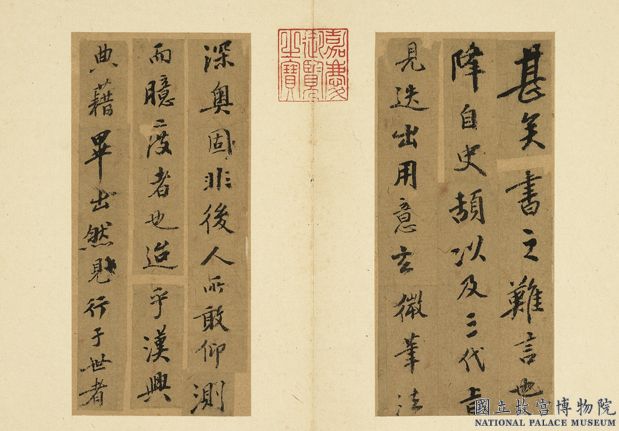 甚矣書之難言也
降自史頡以及三代
見迭出用意玄微筆法
嘉慶
御覽
之寶
深奧固非後人所敢仰測
而臆度者也迨乎漢興
典藉畢出然見行于世者
國立故宮博物院
NATIONAL PALACE MUSEUM